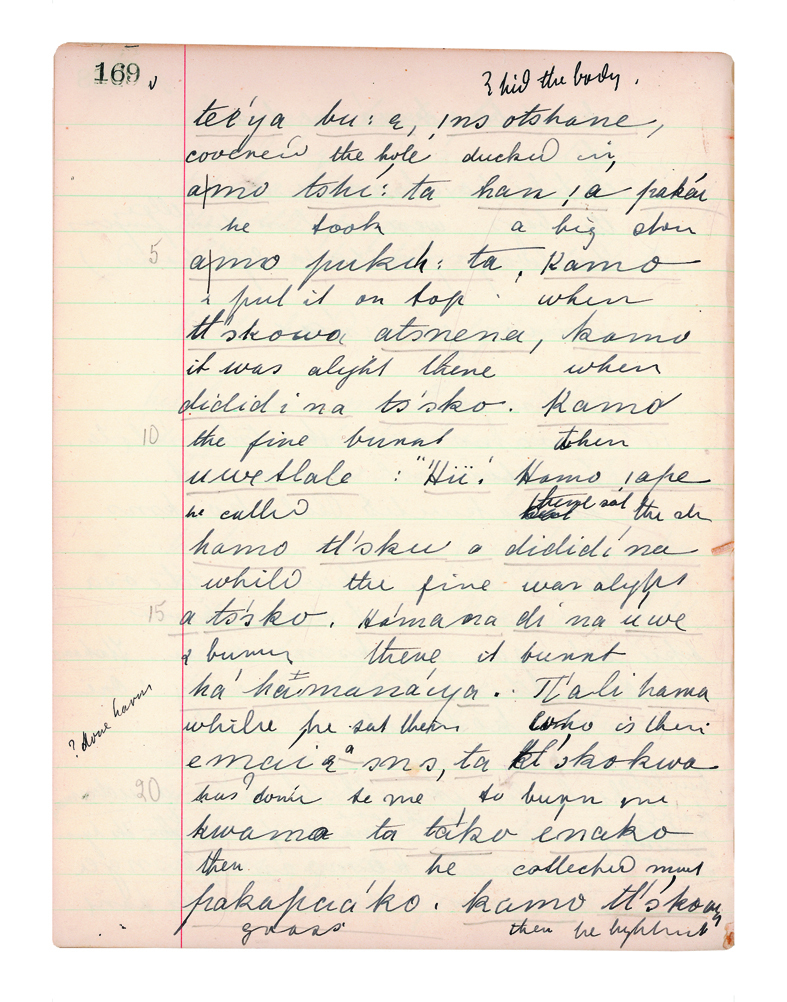 169
? hid the body.
teĕ'ya bu: e, ins otshane,
covered the hole ducked in,
a|mo tshi: ta han ! a pakái
he took a big
5 a|mo pukih: ta, Kamo
& put it on top. when
tl'skowa atsnena, kamo
it was alight there when
didid i na ts'sko. Kamo
10 the fine burnt then
uwetlale : "Hii! Hamo !ape
he called there sat the
hamo tl'sku a dididi na
while the fire was alight
15 a ts'sko. Hámana di na uwe
& there it burnt
há hamanáiya. Tl'ali hama
while he sat there who is there
? done harm
emai sns, ta tl'skokwa
20 has done to me, to burn me
kwama ta táko enako
then he collected most
pakapaáko. kamo tl'sko
grass then he